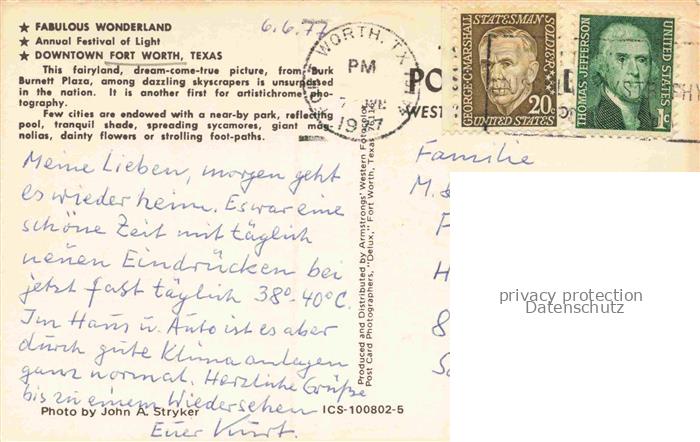 ★ FABULOUS WONDERLAND
★ Annual Festival of Light
★ DOWNTOWN FORT WORTH, TEXAS
This fairyland, dream-come-true picture, from Burk
Burnett Plaza, among dazzling skyscrapers is unsurpassed
in the nation. It is another first for artistichrome pho-
tography.
Few cities are endowed with a near-by park, reflecting
pool, tranquil shade, spreading sycamores, giant mag-
nolias, dainty flowers or strolling foot-paths.
6.6.77
WORTH, TX
PM
1977
PO
WEST
GEORGE C. MARSHALL
STATESMAN
SOLDIER
20c
UNITED STATES
THOMAS JEFFERSON
UNITED STATES
1c
Meine Lieben, morgen geht
es wieder heim. Es war eine
schöne Zeit mit täglich
neuen Eindrücken bei
jetzt fast täglich 38°-40°C.
Im Haus u. Auto ist es aber
durch gute Klimaanlagen
ganz normal. Herzliche Grüße
bis zu einem Wiedersehen
Euer Kurt.
Produced and Distributed by Armstrongs' Western Fotocolor
Post Card Photographers, "Delux," Fort Worth, Texas
Familie
M.
F
H
8
privacy protection
Datenschutz
Photo by John A. Stryker
ICS-100802-5